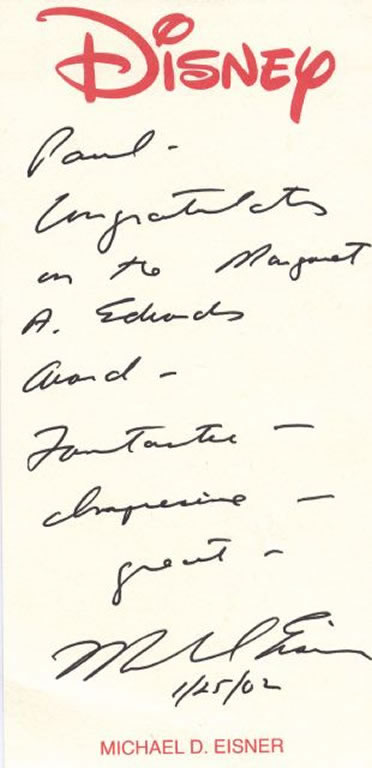 DISNEY
Paul -
Congratulations
on the Margaret
A. Edwards
Award -
Fantastic -
Impressive -
great -
Michael Eisner
1/25/02
MICHAEL D. EISNER